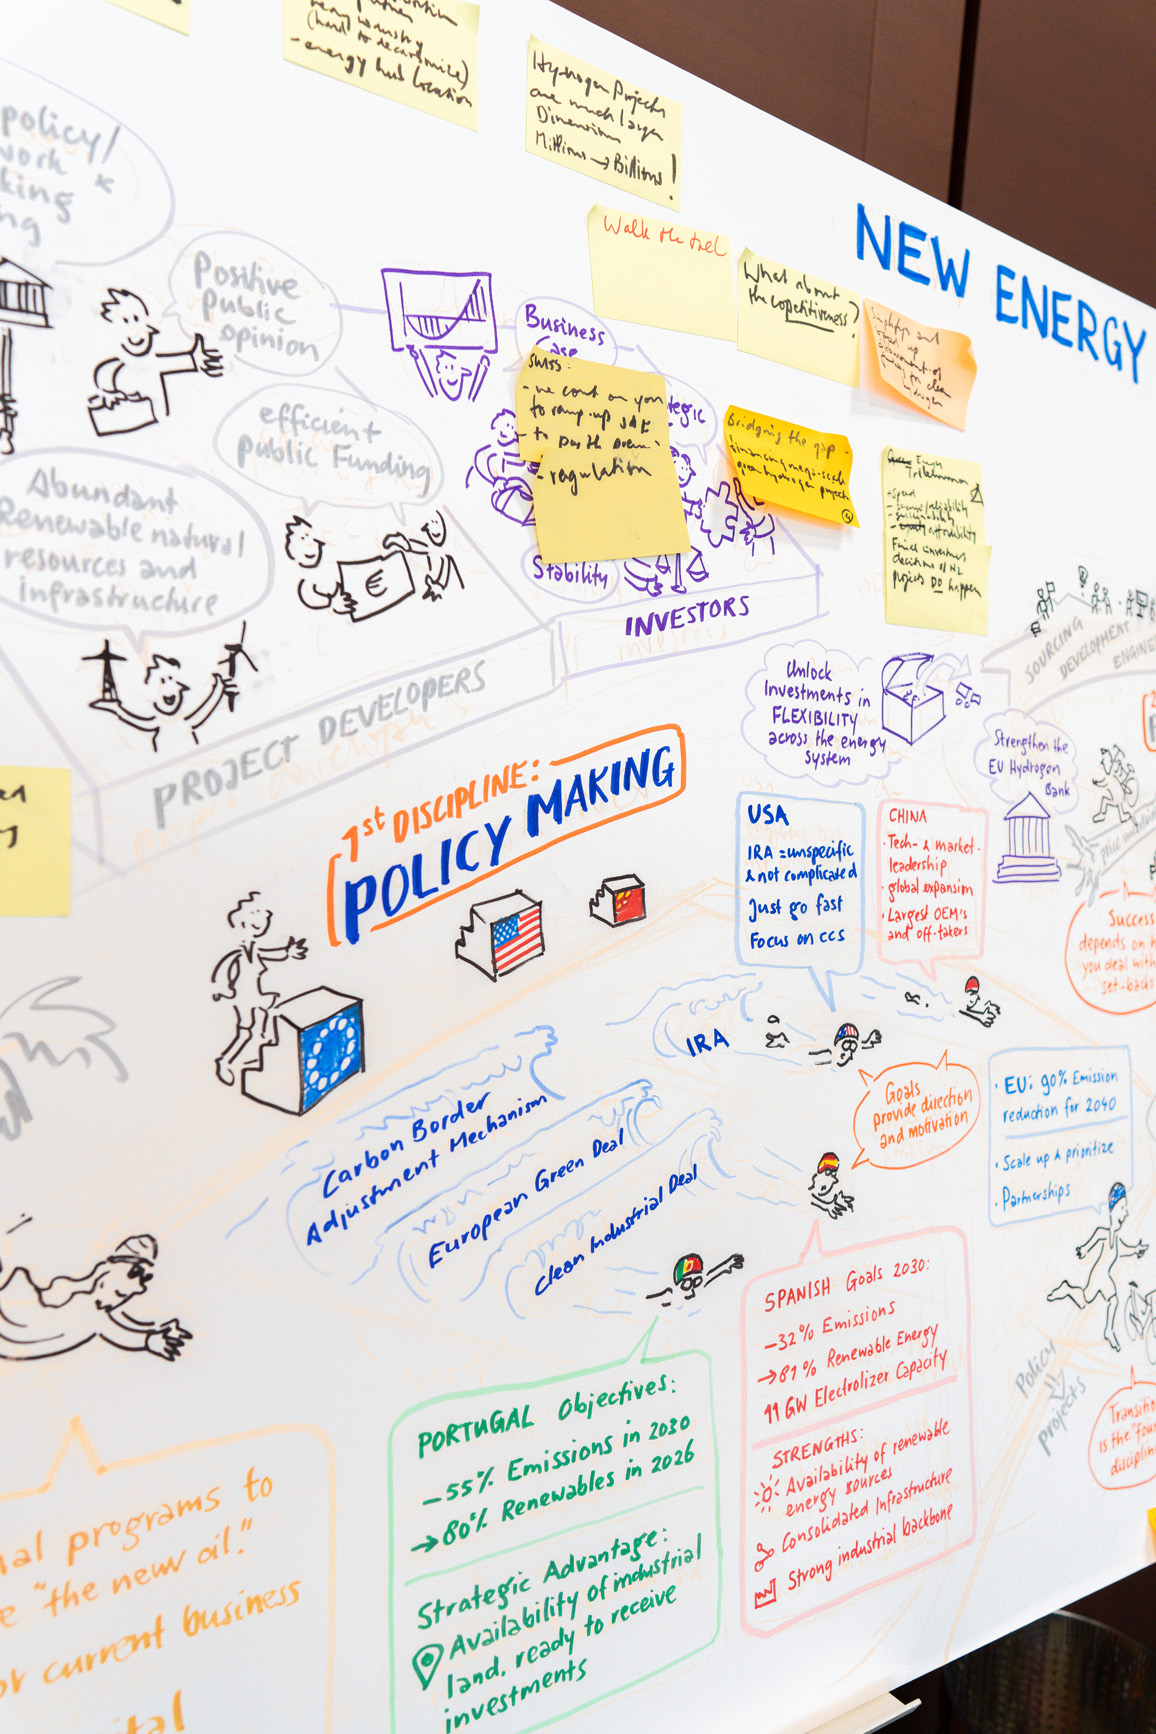 (hard to decarbonize)
- energy hub location
Hydrogen Projects
are much larger
Dimensions
Millions → Billions!
Walk the
What about
the copetitiveness?
NEW ENERGY
policy/
Positive
public
opinion
Business
Case
SWISS:
- we count on you
to ramp-up
to
- regulation
Bridging the gap -
financing mega-scale
green hydrogen projects
Trilemma
Final investment
decisions of H2
projects DO happen
efficient
public Funding
Abundant
Renewable natural
resources and
infrastructure
€
Stability
INVESTORS
PROJECT DEVELOPERS
SOURCING
DEVELOPMENT
Unlock
Investments in
FLEXIBILITY
across the energy
system
Strengthen the
EU Hydrogen
Bank
1st DISCIPLINE:
POLICY MAKING
USA
IRA = unspecific
& not complicated
Just go fast
Focus on CCS
CHINA
· Tech- & market-
leadership
· global expansion
· Largest OEM's
and off-takers
Success
depends on
you deal with
set-backs
IRA
Carbon Border
Adjustment Mechanism
European Green Deal
Clean Industrial Deal
Goals
provide direction
and motivation
· EU: 90% Emission
reduction for 2040
· Scale up & prioritize
· Partnerships
Policy
projects
SPANISH Goals 2030:
-32% Emissions
→81% Renewable Energy
11 GW Electrolizer Capacity
STRENGTHS:
Availability of renewable
energy sources
Consolidated Infrastructure
Strong industrial backbone
is the
PORTUGAL Objectives:
-55% Emissions in 2030
→80% Renewables in 2026
Strategic Advantage:
Availability of industrial
land, ready to receive
investments
programs to
"the new oil."
current business